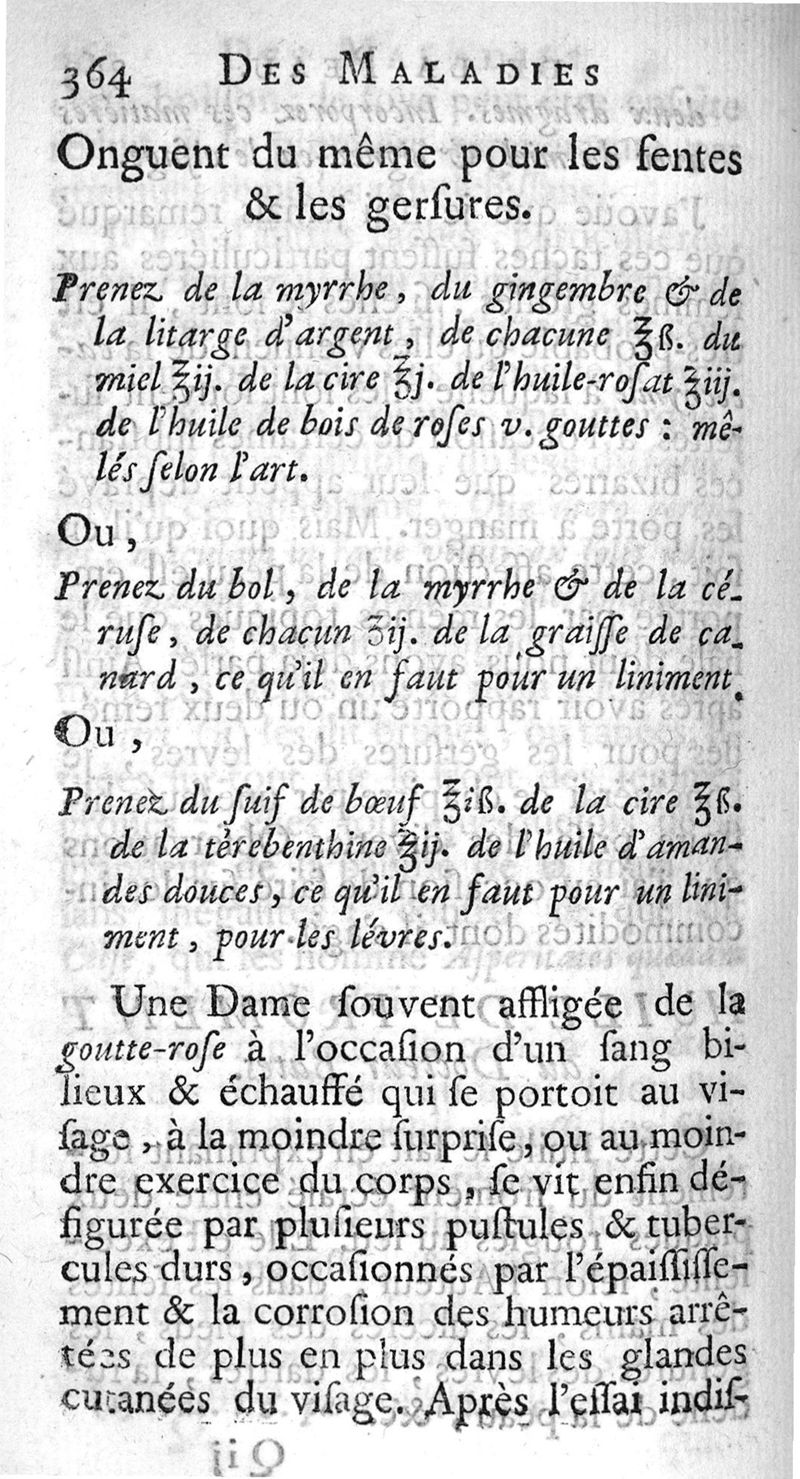 364 DES MALADIES
Onguent du même pour les fentes
& les gerſures.
Prenez de la myrrhe, du gingembre & de
la litarge d'argent, de chacune ℥ß. du
miel ℥ij. de la cire ℥j. de l'huile-roſat ℥iij.
de l'huile de bois de roſes v. gouttes : mê-
lés ſelon l'art.
Ou,
Prenez du bol, de la myrrhe & de la cé-
ruſe, de chacun ʒij. de la graiſſe de ca-
nard, ce qu'il en faut pour un liniment.
Ou,
Prenez du ſuif de bœuf ℥iß. de la cire ℥ß.
de la tèrebenthine ℥ij. de l'huile d'aman-
des douces, ce qu'il en faut pour un lini-
ment, pour les lévres.
Une Dame ſouvent affligée de la
goutte-roſe à l'occaſion d'un ſang bi-
lieux & échauffé qui ſe portoit au vi-
ſage, à la moindre ſurpriſe, ou au moin-
dre exercice du corps, ſe vit enfin dé-
figurée par pluſieurs puſtules & tuber-
cules durs, occaſionnés par l'épaiſſiſſe-
ment & la corroſion des humeurs arrê-
tées de plus en plus dans les glandes
cutanées du viſage. Après l'eſſai indiſ-